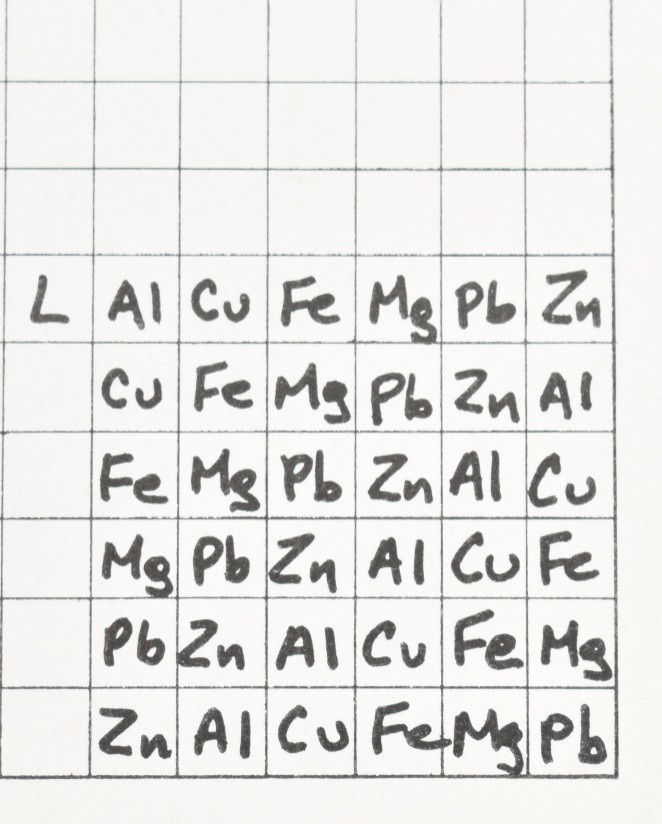 L Al Cu Fe Mg Pb Zn
Cu Fe Mg Pb Zn Al
Fe Mg Pb Zn Al Cu
Mg Pb Zn Al Cu Fe
Pb Zn Al Cu Fe Mg
Zn Al Cu Fe Mg Pb